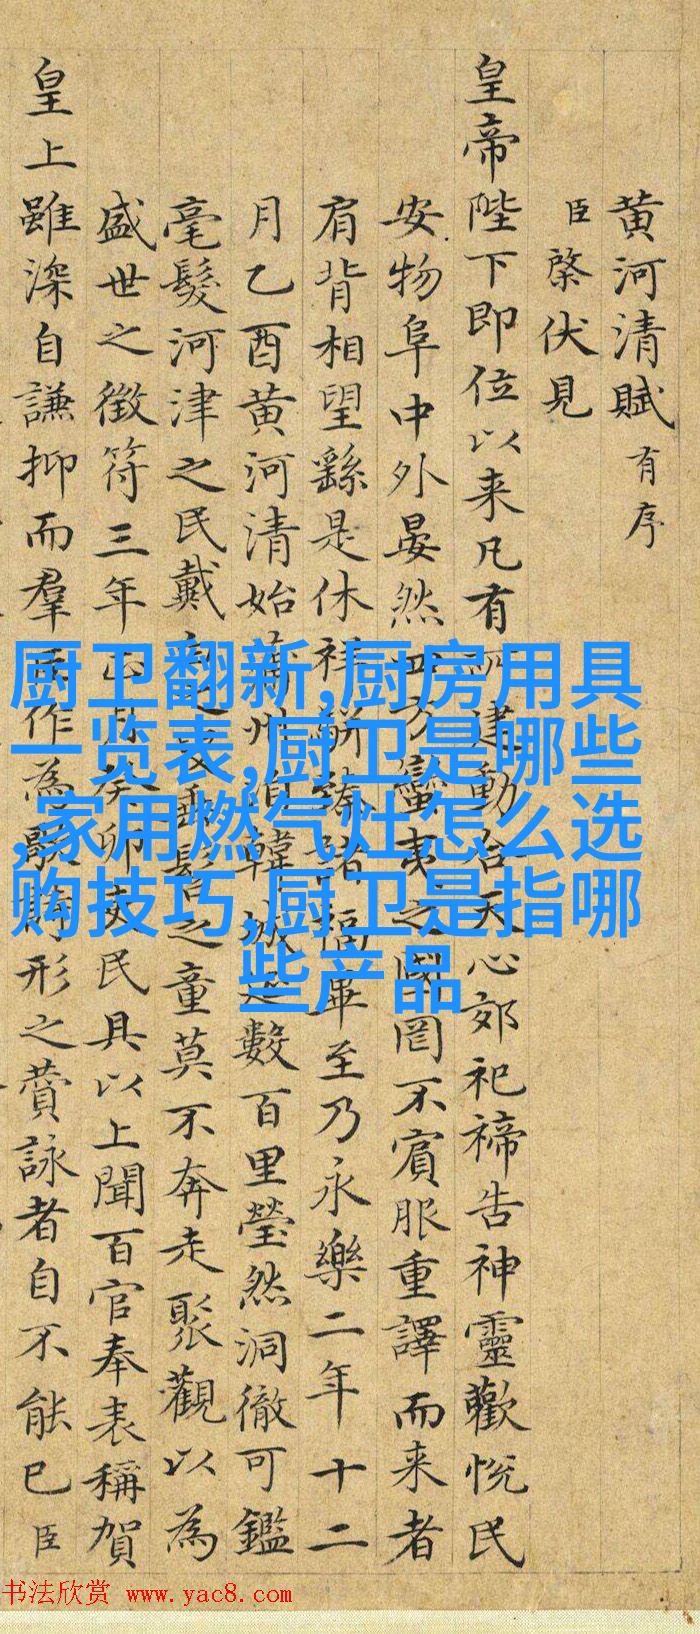 黄河清賦 有序
臣棨伏見
皇帝陛下即位以来凡有所建動合天心郊祀禘告神靈歡悅民
安物阜中外晏然四方蠻夷之國罔不賓服重譯而来者
肩背相望繇是休祥駢臻諸福畢至乃永樂二年十二
月乙酉黄河清始蒲州韓城數百里瑩然洞徹可鑑
毫髮河津之民戴垂髫之童莫不奔走聚觀以為
盛世之徵符三年正月癸卯民具以上聞百官奉表稱賀
皇上雖深自謙抑而羣臣作為歌詩形之賛詠者自不能已臣
厨卫翻新,厨房用具
一览表,厨卫是哪些
,家用燃气灶怎么选
购技巧,厨卫是指哪
些产品
书法欣赏 www.yac8.com